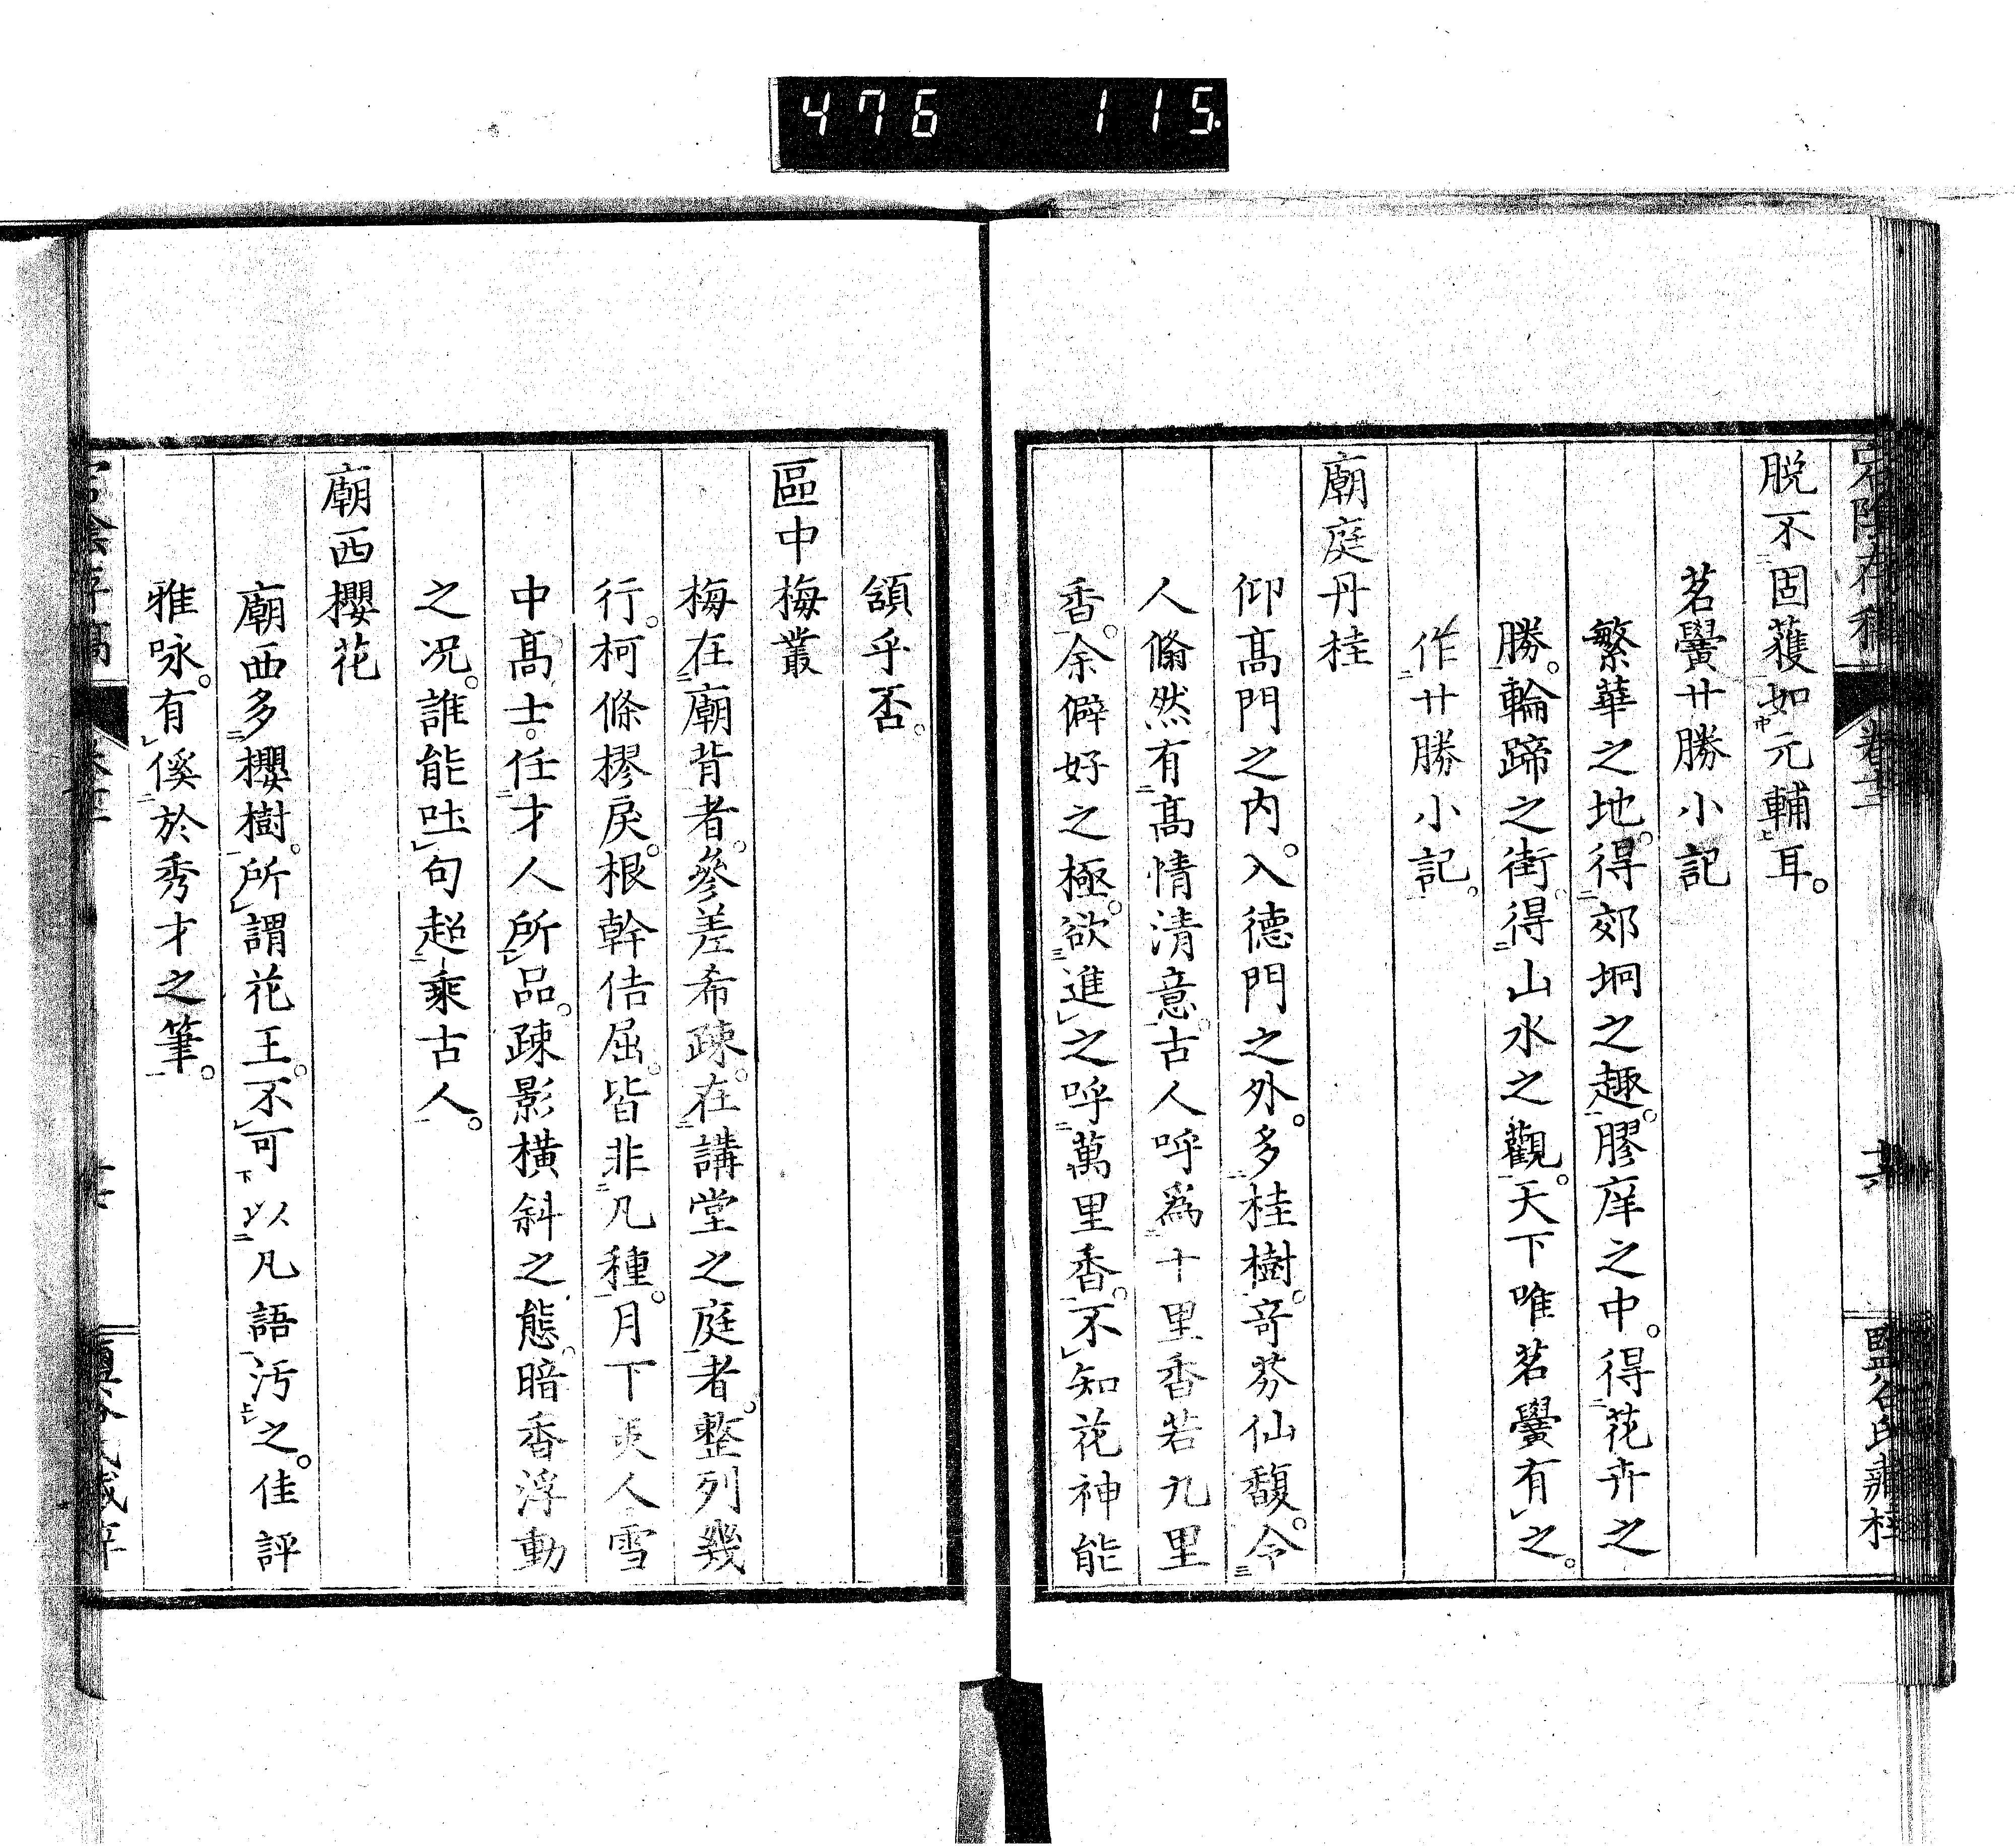 476 115
脱不固蒦如元輔耳。
茗黌廿勝小記
繁華之地。得郊坰之趣。膠庠之中。得花卉之
勝。輪蹄之街。得山水之觀。天下唯茗黌有之。
作廿勝小記。
廟庭丹桂
仰髙門之内。入德門之外。多桂樹。竒芬仙馥。令
人翛然有髙情清意。古人呼爲十里香若九里
香。余僻好之極。欲進之呼萬里香。不知花神能
頷乎否。
區中梅叢
梅在廟背者。參差希疎。在講堂之庭者。整列幾
行。柯條樛戾。根幹佶屈。皆非凡種。月下美人雪
中髙士。任才人所品。疎影橫斜之態。暗香浮動
之況。誰能吐句超乘古人。
廟西櫻花
廟西多櫻樹。所謂花王。不可以凡語汚之。佳評
雅咏。有傒於秀才之筆。